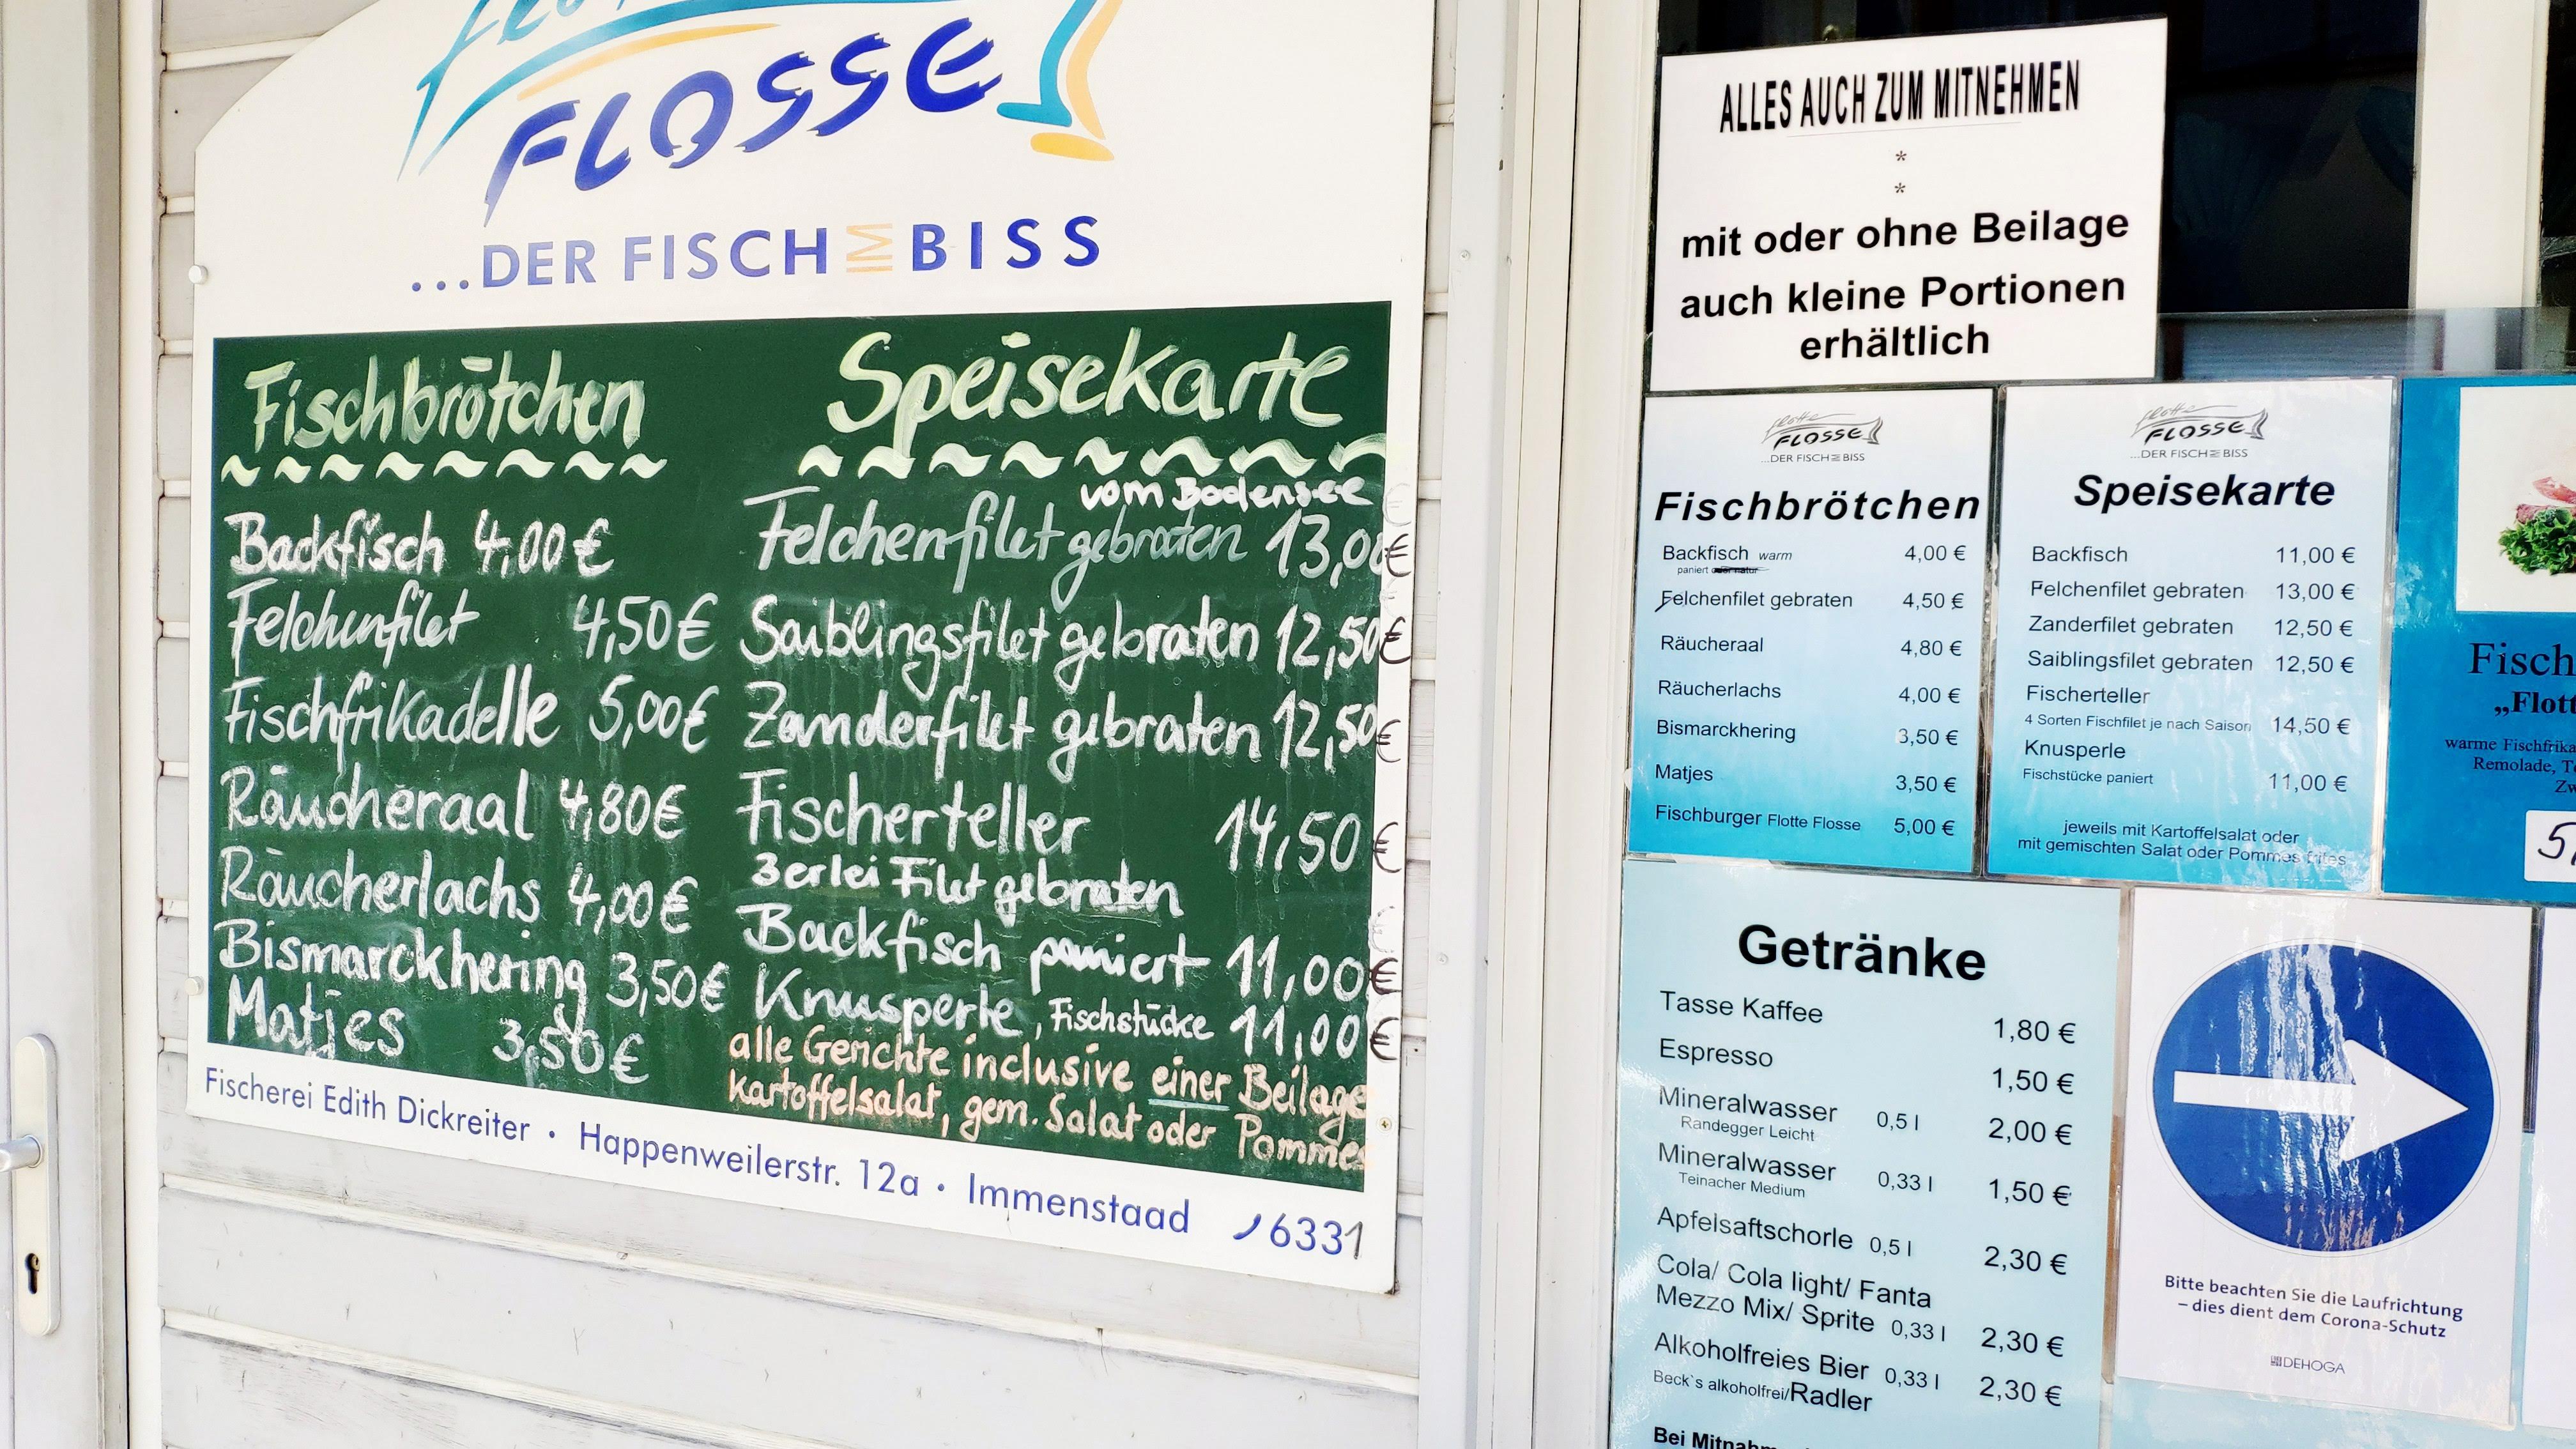 FLOSSE
...DER FISCH IM BISS
Fischbrötchen
Backfisch 4,00 €
Felchenfilet 4,50 €
Fischfrikadelle 5,00 €
Räucheraal 4,80 €
Räucherlachs 4,00 €
Bismarckhering 3,50 €
Matjes 3,50 €
Speisekarte
vom Bodensee
Felchenfilet gebraten 13,00 €
Saiblingsfilet gebraten 12,50 €
Zanderfilet gebraten 12,50 €
Fischerteller 14,50 €
3erlei Filet gebraten
Backfisch paniert 11,00 €
Knusperle, Fischstücke 11,00 €
alle Gerichte inclusive einer Beilage
Kartoffelsalat, gem. Salat oder Pommes
Fischerei Edith Dickreiter • Happenweilerstr. 12a • Immenstaad 6331
ALLES AUCH ZUM MITNEHMEN
*
*
mit oder ohne Beilage
auch kleine Portionen
erhältlich
flotte
FLOSSE
...DER FISCH IM BISS
Fischbrötchen
Backfisch warm 4,00 €
paniert oder natur
Felchenfilet gebraten 4,50 €
Räucheraal 4,80 €
Räucherlachs 4,00 €
Bismarckhering 3,50 €
Matjes 3,50 €
Fischburger Flotte Flosse 5,00 €
flotte
FLOSSE
...DER FISCH IM BISS
Speisekarte
Backfisch 11,00 €
Felchenfilet gebraten 13,00 €
Zanderfilet gebraten 12,50 €
Saiblingsfilet gebraten 12,50 €
Fischerteller
4 Sorten Fischfilet je nach Saison 14,50 €
Knusperle
Fischstücke paniert 11,00 €
jeweils mit Kartoffelsalat oder
mit gemischten Salat oder Pommes frites
Fisch
„Flott
warme Fischfrika
Remolade, T
Zw
5,
Getränke
Tasse Kaffee 1,80 €
Espresso 1,50 €
Mineralwasser 0,5 l 2,00 €
Randegger Leicht
Mineralwasser 0,33 l 1,50 €
Teinacher Medium
Apfelsaftschorle 0,5 l 2,30 €
Cola/ Cola light/ Fanta
Mezzo Mix/ Sprite 0,33 l 2,30 €
Alkoholfreies Bier 0,33 l 2,30 €
Beck`s alkoholfrei/Radler
Bei Mitnahm
Bitte beachten Sie die Laufrichtung
– dies dient dem Corona-Schutz
DEHOGA